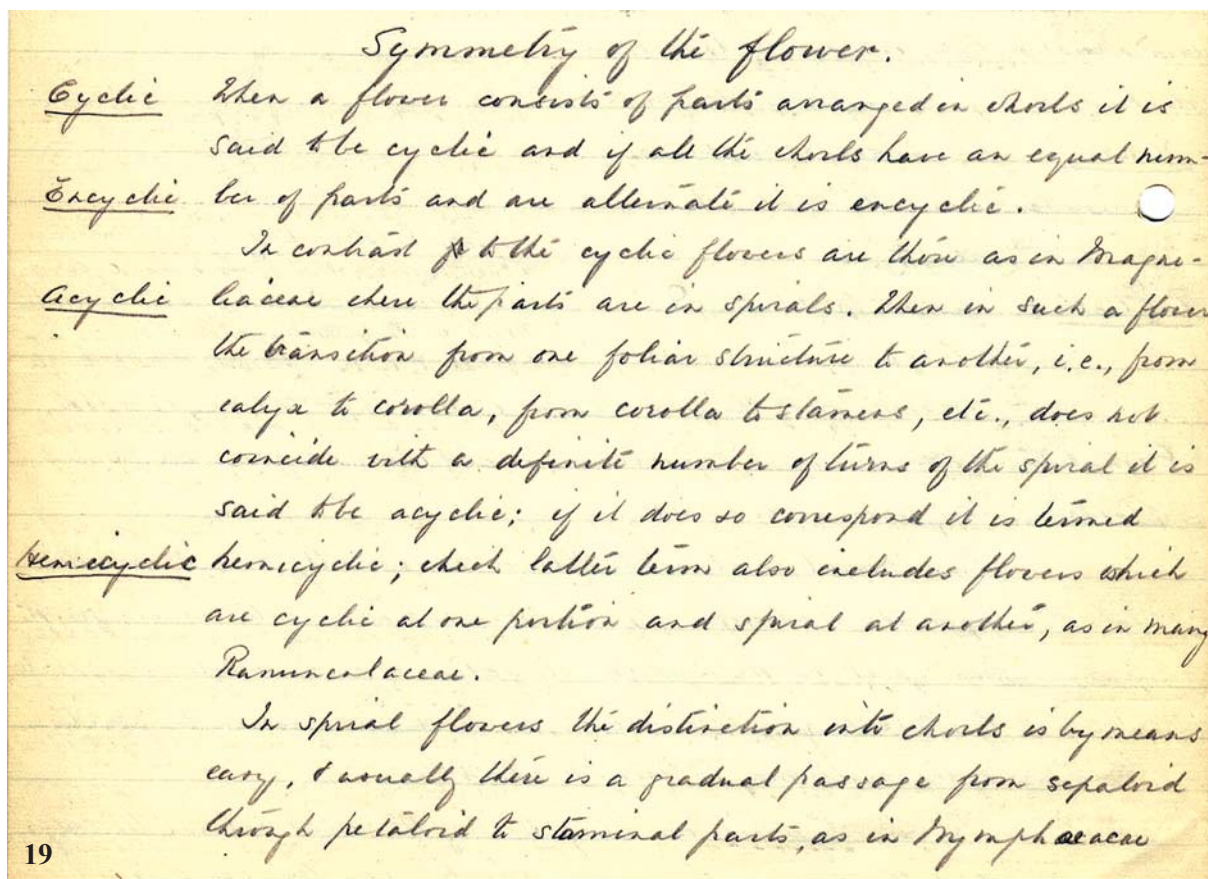 Symmetry of the flower.
Cyclic When a flower consists of parts arranged in whorls it is
said to be cyclic and if all the whorls have an equal num-
Eucyclic ber of parts and are alternate it is eucyclic.
In contrast to the cyclic flowers are those as in Magno-
Acyclic liaceae where the parts are in spirals. When in such a flower
the transition from one foliar structure to another, i.e., from
calyx to corolla, from corolla to stamens, etc., does not
coincide with a definite number of turns of the spiral it is
said to be acyclic; if it does so correspond it is termed
Hemicyclic hemicyclic; which latter term also includes flowers which
are cyclic at one portion and spiral at another, as in many
Ranunculaceae.
In spiral flowers the distinction into whorls is by means
easy, & usually there is a gradual passage from sepaloid
through petaloid to staminal parts, as in Nymphaeaceae
19